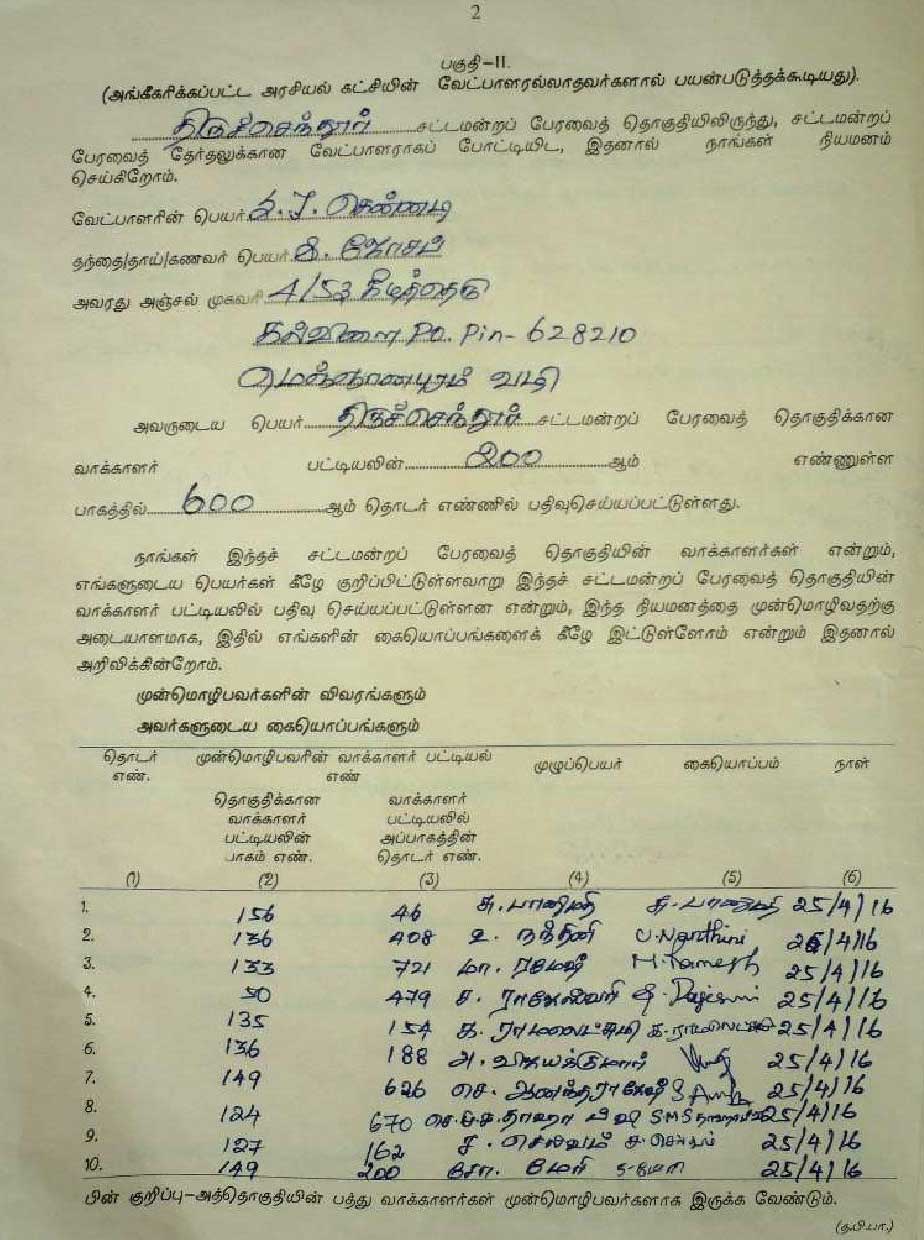 2
பகுதி-II.
(அங்கீகரிக்கப்பட்ட அரசியல் கட்சியின் வேட்பாளரல்லாதவர்களால் பயன்படுத்தக்கூடியது).
திருச்செந்தூர் சட்டமன்றப் பேரவைத் தொகுதியிலிருந்து, சட்டமன்றப்
பேரவைத் தேர்தலுக்கான வேட்பாளராகப் போட்டியிட, இதனால் நாங்கள் நியமனம்
செய்கிறோம்.
வேட்பாளரின் பெயர்
தந்தை/தாய்/கணவர் பெயர் ஜோசப்
அவரது அஞ்சல் முகவரி 4/53
கல்விளை PO. Pin- 628210
மெஞ்ஞானபுரம் வழி
அவருடைய பெயர் திருச்செந்தூர் சட்டமன்றப் பேரவைத் தொகுதிக்கான
வாக்காளர் பட்டியலின் 200 ஆம் எண்ணுள்ள
பாகத்தில் 600 ஆம் தொடர் எண்ணில் பதிவுசெய்யப்பட்டுள்ளது.
நாங்கள் இந்தச் சட்டமன்றப் பேரவைத் தொகுதியின் வாக்காளர்கள் என்றும்,
எங்களுடைய பெயர்கள் கீழே குறிப்பிட்டுள்ளவாறு இந்தச் சட்டமன்றப் பேரவைத் தொகுதியின்
வாக்காளர் பட்டியலில் பதிவு செய்யப்பட்டுள்ளன என்றும், இந்த நியமனத்தை முன்மொழிவதற்கு
அடையாளமாக, இதில் எங்களின் கையொப்பங்களைக் கீழே இட்டுள்ளோம் என்றும் இதனால்
அறிவிக்கின்றோம்.
முன்மொழிபவர்களின் விவரங்களும்
அவர்களுடைய கையொப்பங்களும்
தொடர் முன்மொழிபவரின் வாக்காளர் பட்டியல் முழுப்பெயர் கையொப்பம் நாள்
எண். எண்
தொகுதிக்கான வாக்காளர்
வாக்காளர் பட்டியலில்
பட்டியலின் அப்பாகத்தின்
பாகம் எண். தொடர் எண்.
(1) (2) (3) (4) (5) (6)
1. 156 46 25/4/16
2. 136 408 உ. நந்தினி U. Nanthini 25/4/16
3. 133 721 மா. ரமேஷ் M. Ramesh 25/4/16
4. 50 479 ச. ராஜேஸ்வரி 25/4/16
5. 135 154 க. ராமலெட்சுமி க. ராமலெட்சுமி 25/4/16
6. 136 188 அ. விஜயக்குமார் 25/4/16
7. 149 626 செ. ஆனந்தராஜேஷ் 25/4/16
8. 124 670 25/4/16
9. 127 162 ச. செல்வம் ச. செல்வம் 25/4/16
10. 149 200 சோ. மேரி 25/4/16
பின் குறிப்பு-அத்தொகுதியின் பத்து வாக்காளர்கள் முன்மொழிபவர்களாக இருக்க வேண்டும்.
(த.பி.பா.)